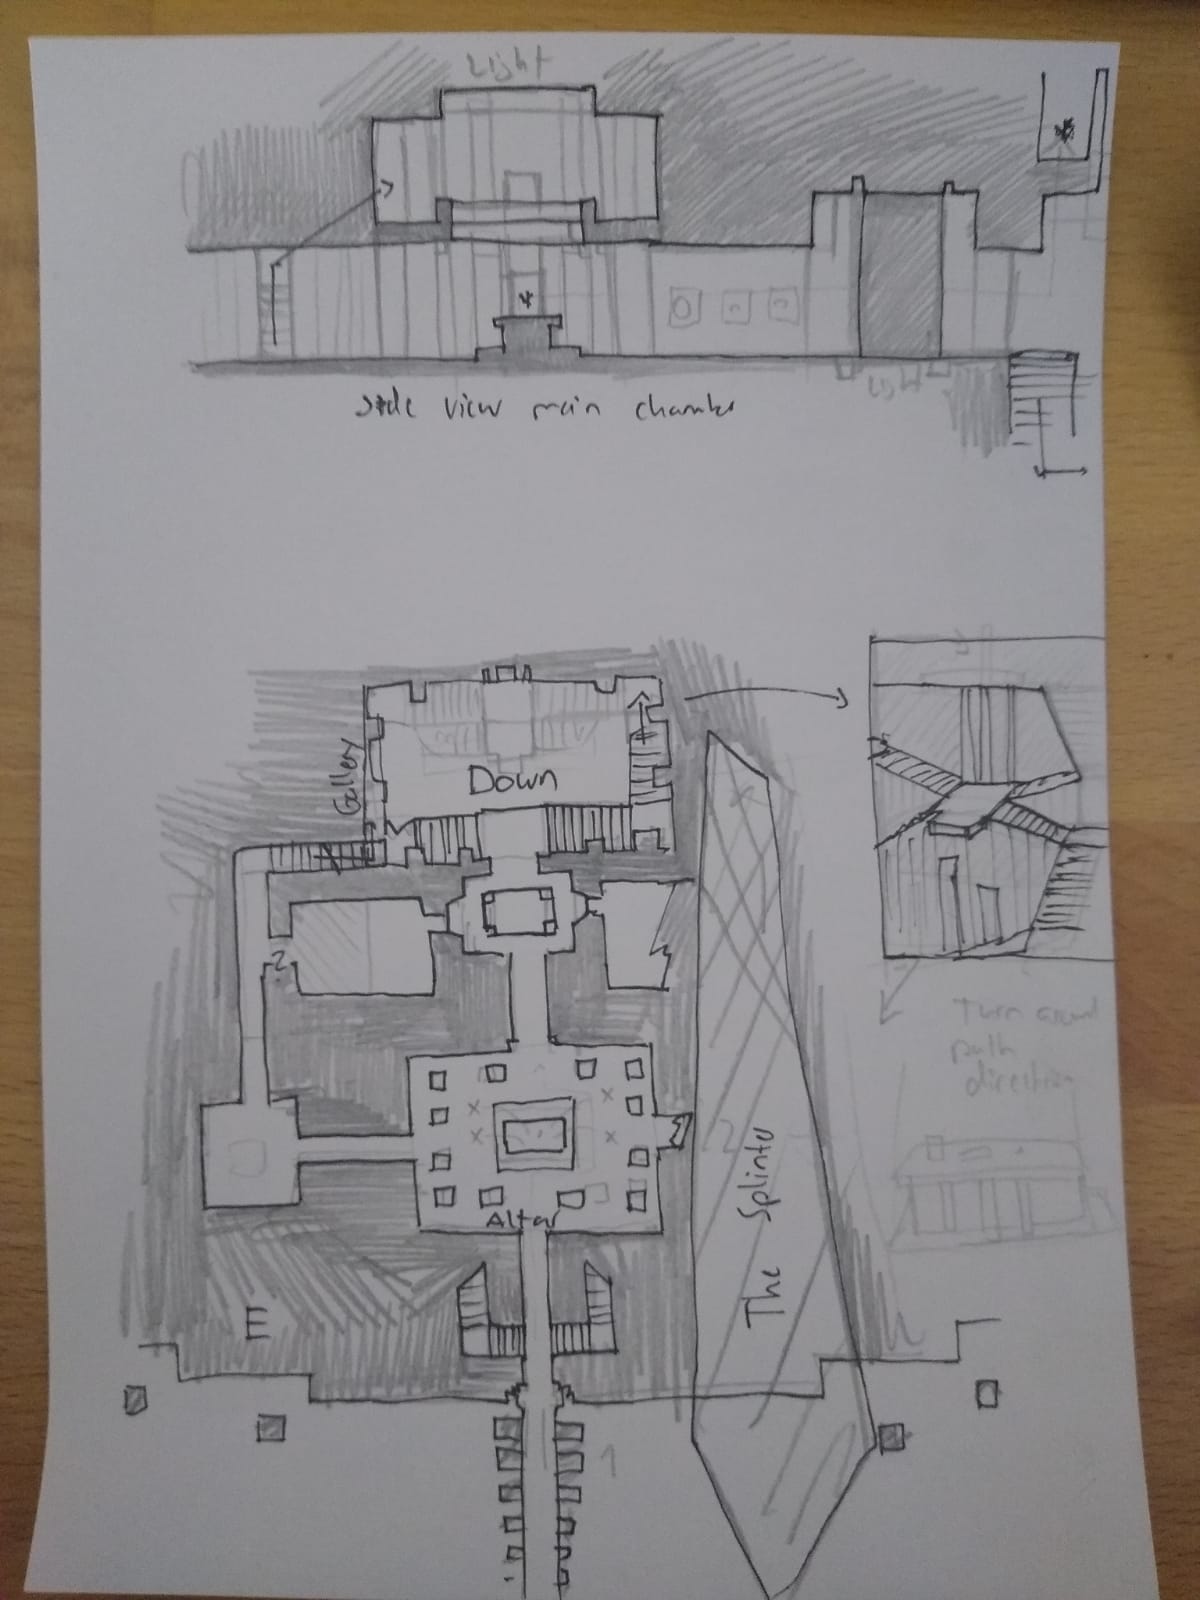 Light
side view main chamber
Gallery
Down
Altar
The Splinter
Turn around
path
direction
2
1